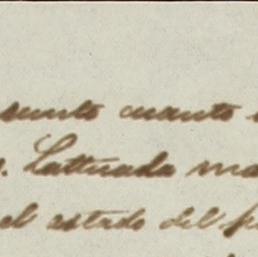 sunto cuanto
. Lattuada ma
el estado del